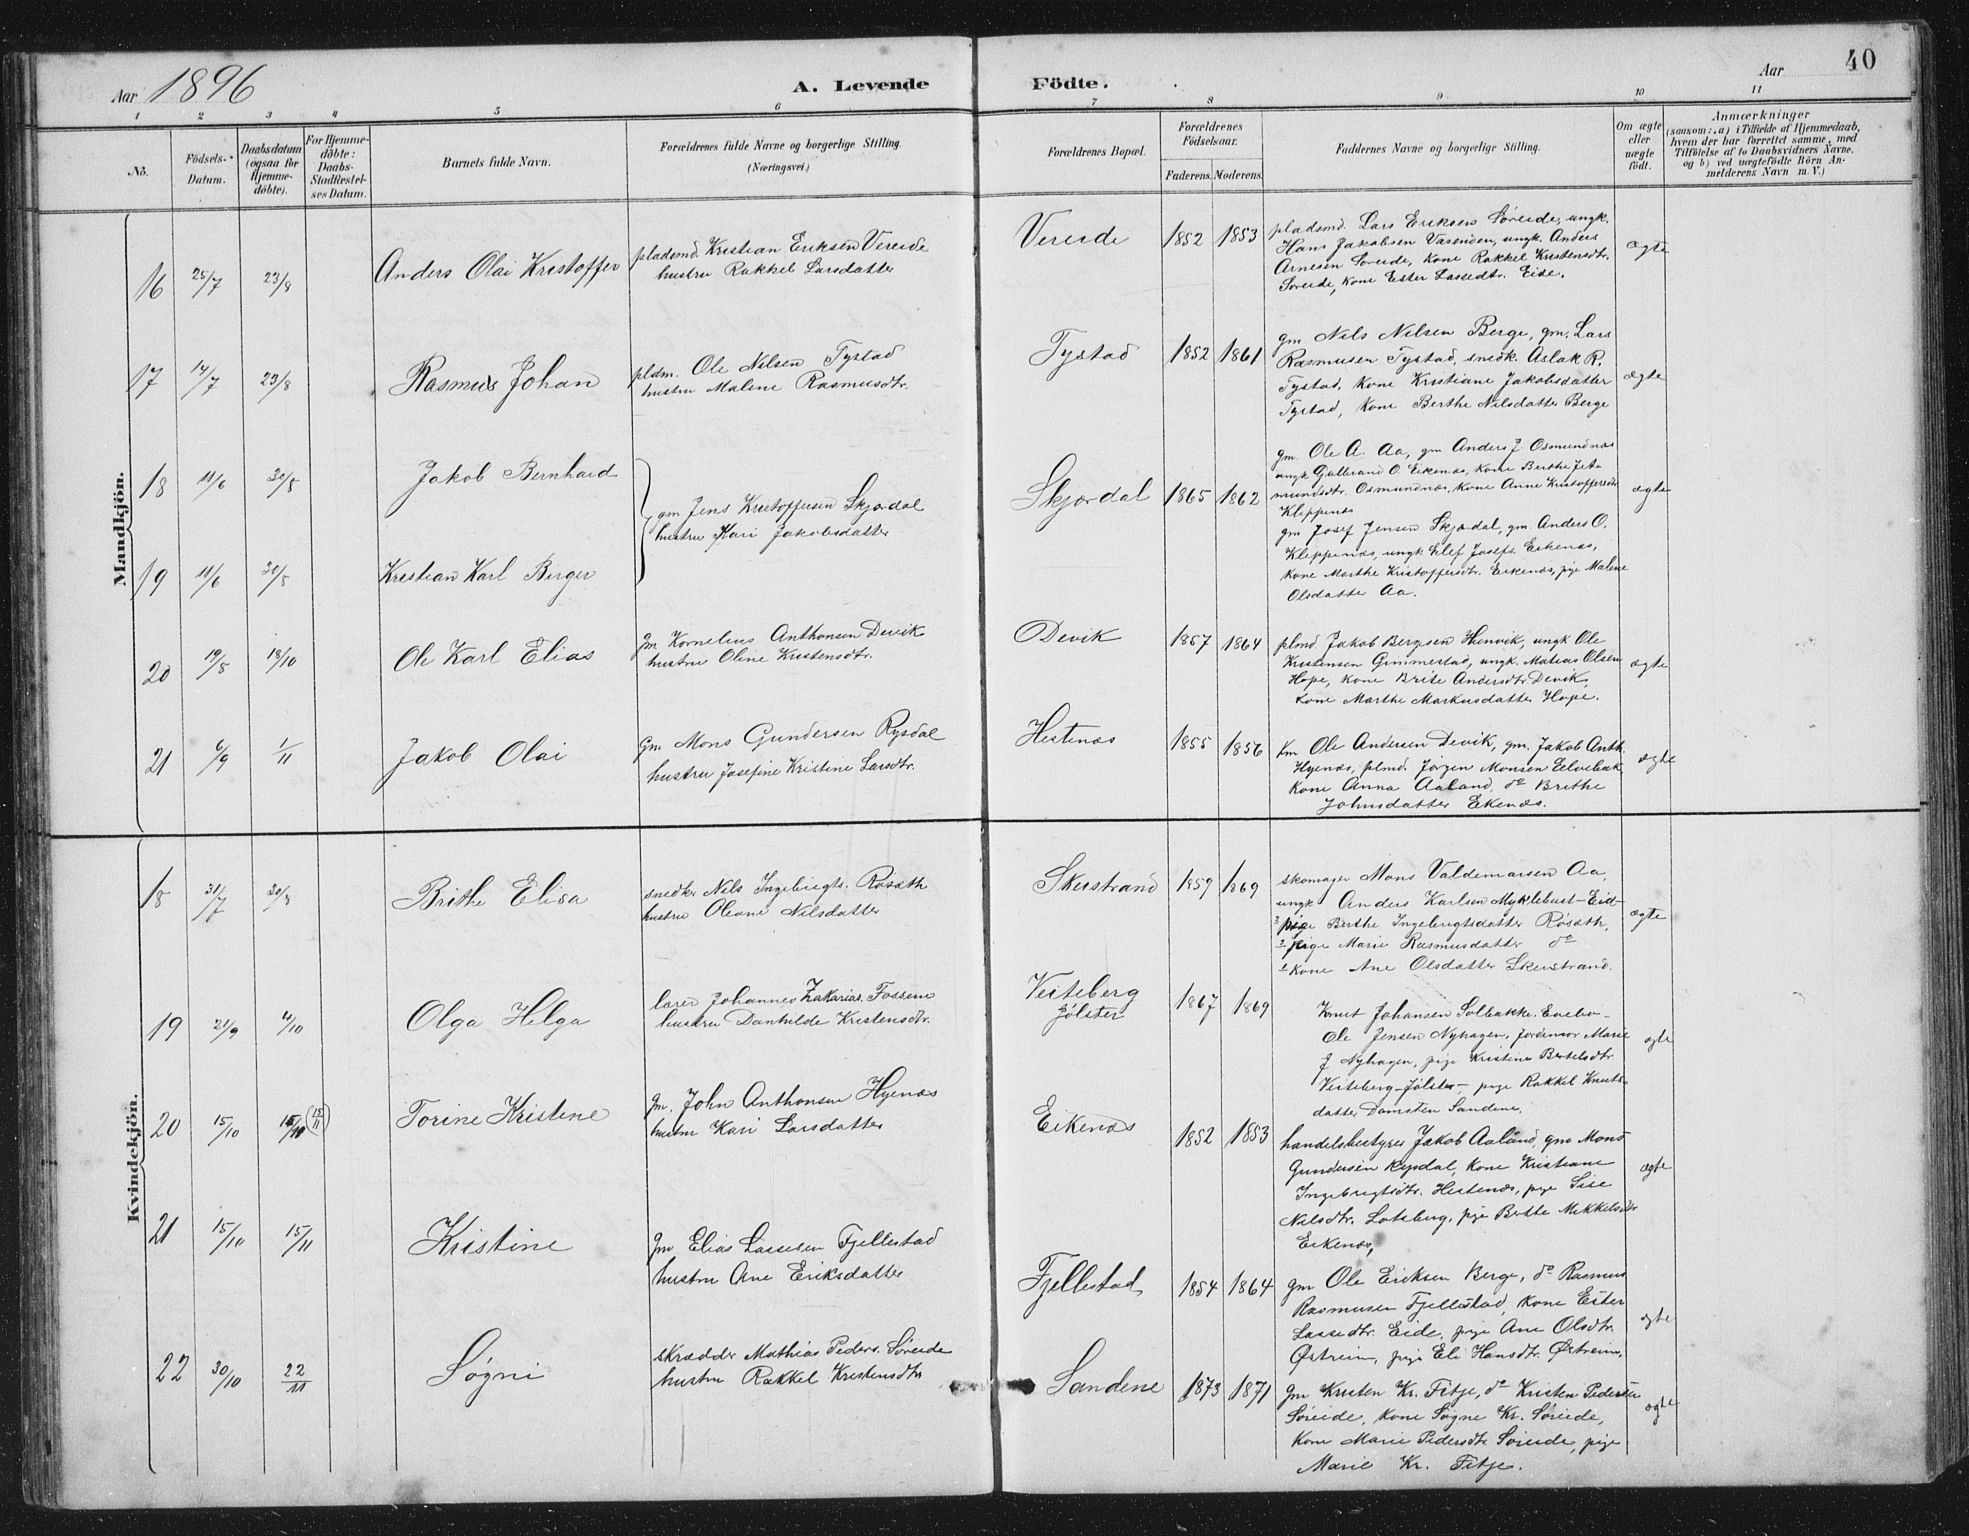 Aar 1896
A. Levende Födte.
Aar
40
1 2 3 4 5 6 7 8 9 10 11
No.
Födsels-Datum.
Daabsdatum (ogsaa for Hjemmedöbte).
For Hjemmedöbte: Daabs-Stadfæstelses Datum.
Barnets fulde Navn.
Forældrenes fulde Navne og borgerlige Stilling.
(Næringsvei.)
Forældrenes Bopæl.
Forældrenes Födselsaar.
Faderens. Moderens.
Faddernes Navne og borgerlige Stilling.
Om ægte eller uægte födt.
Anmærkninger
(saasom: a) i Tilfælde af Hjemmedaab,
hvem der har forrettet samme, med
Tilföielse af to Daabsvidners Navne,
og b) ved uægtefödte Börn An-
melderens Navn m. V.)
Mandkjön.
16 25/7 23/8 Anders Olai Kristoffer
pladsmd. Kristian Eriksen Vereide
hustru Rakkel Larsdatter
Vereide 1852 1853
pladsmd. Lars Eriksen Søreide, ungk.
Hans Jakobsen Vasenden, ungk. Anders
Arnesen Søreide, Kone Rakkel Kristensdtr.
Søreide, Kone Ester Lassedtr. Eide.
ægte
17 14/7 23/8 Rasmus Johan
pldm. Ole Nilsen Tystad
hustru Malene Rasmusdtr.
Tystad 1852 1861
gm Nils Nilsen Berge, gm. Lars
Rasmusen Tystad, snedk. Aslak R.
Tystad, Kone Kristiane Jakobsdatter
Tystad, Kone Berthe Nilsdatter Berge
ægte
18 11/6 30/8 Jakob Bernhard
gm Jens Kristoffersen Skjærdal
hustru Kari Jakobsdatter
Skjærdal 1865 1862
gm. Ole A. Aa, gm Anders J. Osmundnæs
ungk Gulbrand O. Eikenæs, Kone Berthe
mundsdtr. Osmundnæs, Kone Anne Kristoffersdtr
Kleppenæs
ægte
19 11/6 30/8 Kristian Karl Birger
gm Josef Jensen Skjærdal, gm. Anders O.
Kleppenæs, ungk Josefs. Eikenæs,
Kone Marthe Kristoffersdtr. Eikenæs, pige Malene
Olsdatter Aa.
20 19/8 18/10 Ole Karl Elias
gm. Kornelius Anthonsen Devik
hustru Oline Kristensdtr.
Devik 1857 1864
plmd. Jakob Bergesen Hunvik, ungk Ole
Kristensen Gimmestad, ungk. Matias Olsen
Hope, Kone Brite Andersdtr. Devik,
Kone Marthe Markusdatter Hope.
ægte
21 6/9 1/11 Jakob Olai
Gm Mons Gundersen Rysdal
hustru Josefine Kristine Larsdtr.
Hestenæs 1855 1856
Km Ole Andersen Devik, gm. Jakob Anth.
Hyenæs, plmd. Jørgen Monsen
Kone Anna Aaland, do Brithe
Johnsdatter Eikenæs.
ægte
Kvindekjön.
18 31/7 30/8 Brithe Elisa
snedkr Nils Ingebrigts. Røsæth
hustru Oleane Nilsdatter
Skeistrand 1859 1869
skomager Mons Valdemarsen Aa,
ungk Anders Karlsen Myklebust-Eid-
pige Berthe Ingebrigtsdatter Røsæth,
pige Marie Rasmusdatter do
Kone Ane Olsdatter Skeistrand.
ægte
19 21/9 4/10 Olga Helga
lærer Johannes Zakarias. Fossem
hustru Danhilde Kristensdtr.
Veiteberg
Jølster
1867 1869
Knut Johansen Solbakke. Evebø-
Ole Jensen Nyhagen, Jordemor Marie
J Nyhagen, pige Kristine Bertelsdtr.
Veiteberg-Jølster-, pige Rakkel Knuts-
datter Domsten Sandene.
ægte
20 15/10 15/11 (15/11) Torine Kristine
gm. John Anthonsen Hyenæs
hustru Kari Larsdatter
Eikenæs 1852 1853
handelsbestyrer Jakob Aaland, gm Mons
Gundersen Rysdal, Kone Kristiane
Ingebrigtsdtr. Hestenæs, pige Sise
Nilsdtr. Lotsberg, pige Berthe Mikkelsdtr
Eikenæs,
ægte
21 15/10 15/11 Kristine
gm Elias Lassesen Fjellestad
hustru Ane Eriksdatter
Fjellestad 1854 1864
gm Ole Eriksen Berge, do Rasmus
Rasmusen Fjellestad, Kone Ester
Lassedtr. Eide, pige Ane Olsdtr.
Østrein, pige Eli Hansdtr. Østrein.
ægte
22 30/10 22/11 Søgni
skrædder Mathias Peders. Søreide
hustru Rakkel Kristensdtr
Sandene 1873 1871
gm Kristen Kr. Fitje, do Kristen Pedersen
Søreide, Kone Søgne Kr. Søreide,
Kone Marie Pedersdtr. Søreide, pige
Marie Kr. Fitje.
ægte